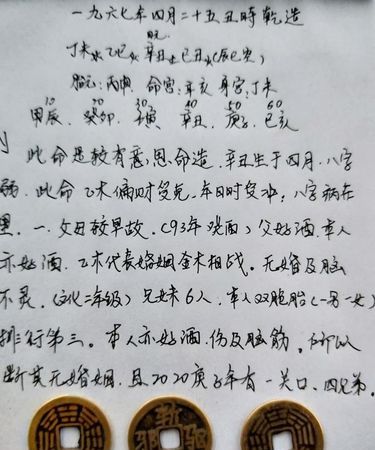 一九六七年四月二十五丑時乾造
日元
丁未 乙巳 辛丑 己丑(辰巳空)
胎元:丙申 命宫:辛亥 身宫:丁未
10 20 30 40 50 60
甲辰 癸卯 壬寅 辛丑 庚子 己亥
此命是较有意思命造,辛丑生于四月,八字
弱,此命乙木偏财受克,年日时受冲,八字病在
一、父母较早故,(93年 父好酒,本人
亦好酒,乙木代表婚姻金木相战,无婚及脑
不灵,(文化二年级)兄妹6人,本人双胞胎(一男一女)
排行第三。本人亦好酒,伤及脑筋,所以
断其无婚姻,且2020庚子年有一关口,四兄弟。